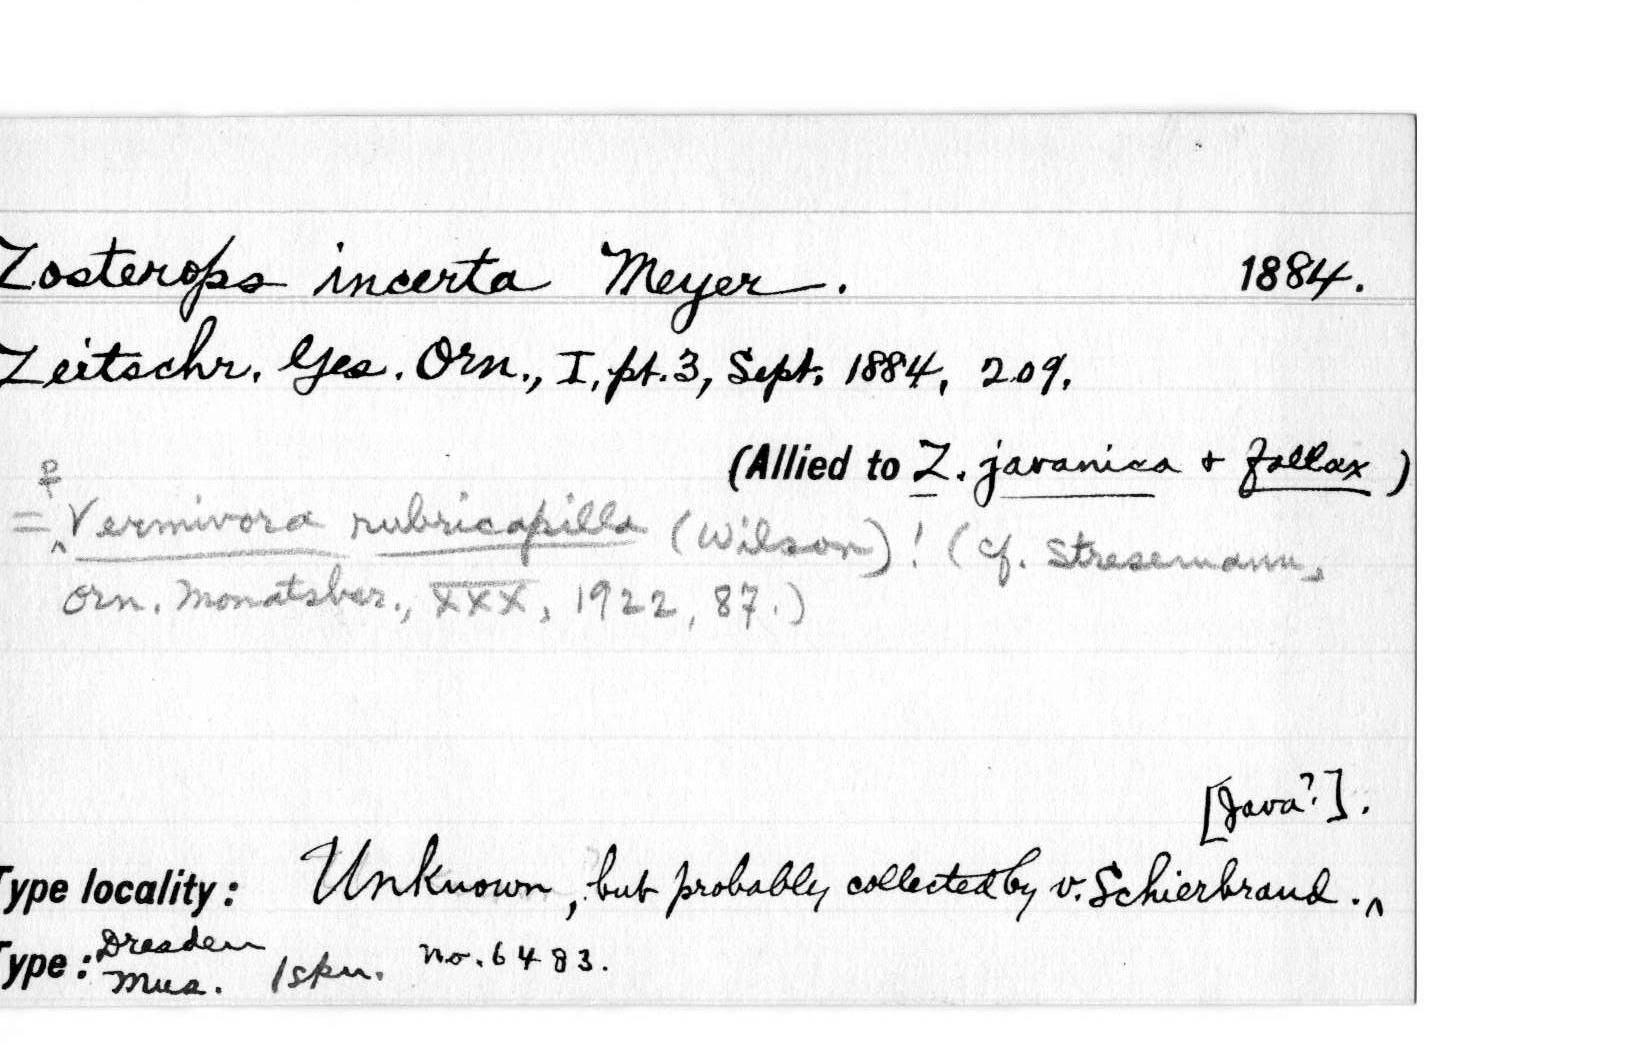 Zosterops incerta Meyer. 1884.
Zeitschr. Ges. Orn., I, pt. 3, Sept. 1884, 209.
(Allied to Z. javanica + fallax)
♀
= ^ Vermivora rubricapilla (Wilson)! (cf. Stresemann,
Orn. Monatsber., XXX, 1922, 87.)
[Java?].
Type locality: Unknown, but probably collected by v. Schierbrand. ^
Type: Dresden Mus. 1 spn. No. 6483.